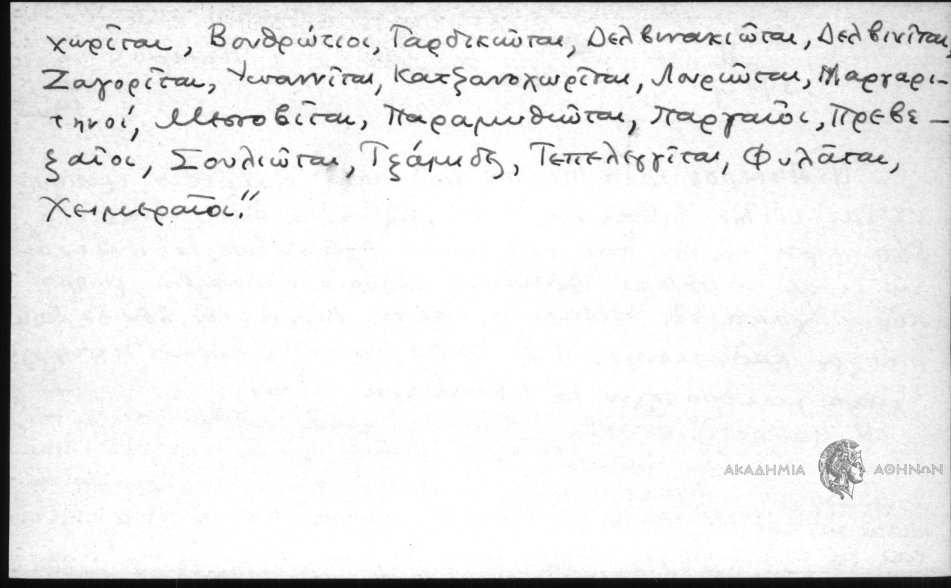 χωρῖται, Βουθρώτιοι, Γαρδικιῶται, Δελβινακιῶται, Δελβινῖται,
Ζαγορῖται, Υπαννῖται, Κατζανοχωρῖται, Λουριῶται, Μαργαρι-
τηνοί, Μετσοβῖται, Παραμυθιῶται, Παργαῖοι, Πρεβε-
ζαῖοι, Σουλιῶται, Τζάμηδες, Τεπελεγγῖται, Φυλᾶται,
Χειμεραῖοι."
ΑΚΑΔΗΜΙΑ ΑΘΗΝΩΝ